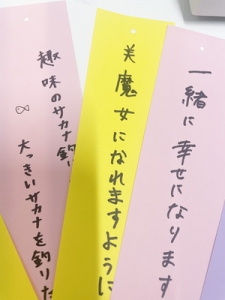 一緒に幸せになります
美魔女になれますように
趣味のサカナ釣り
大っきいサカナを釣りた